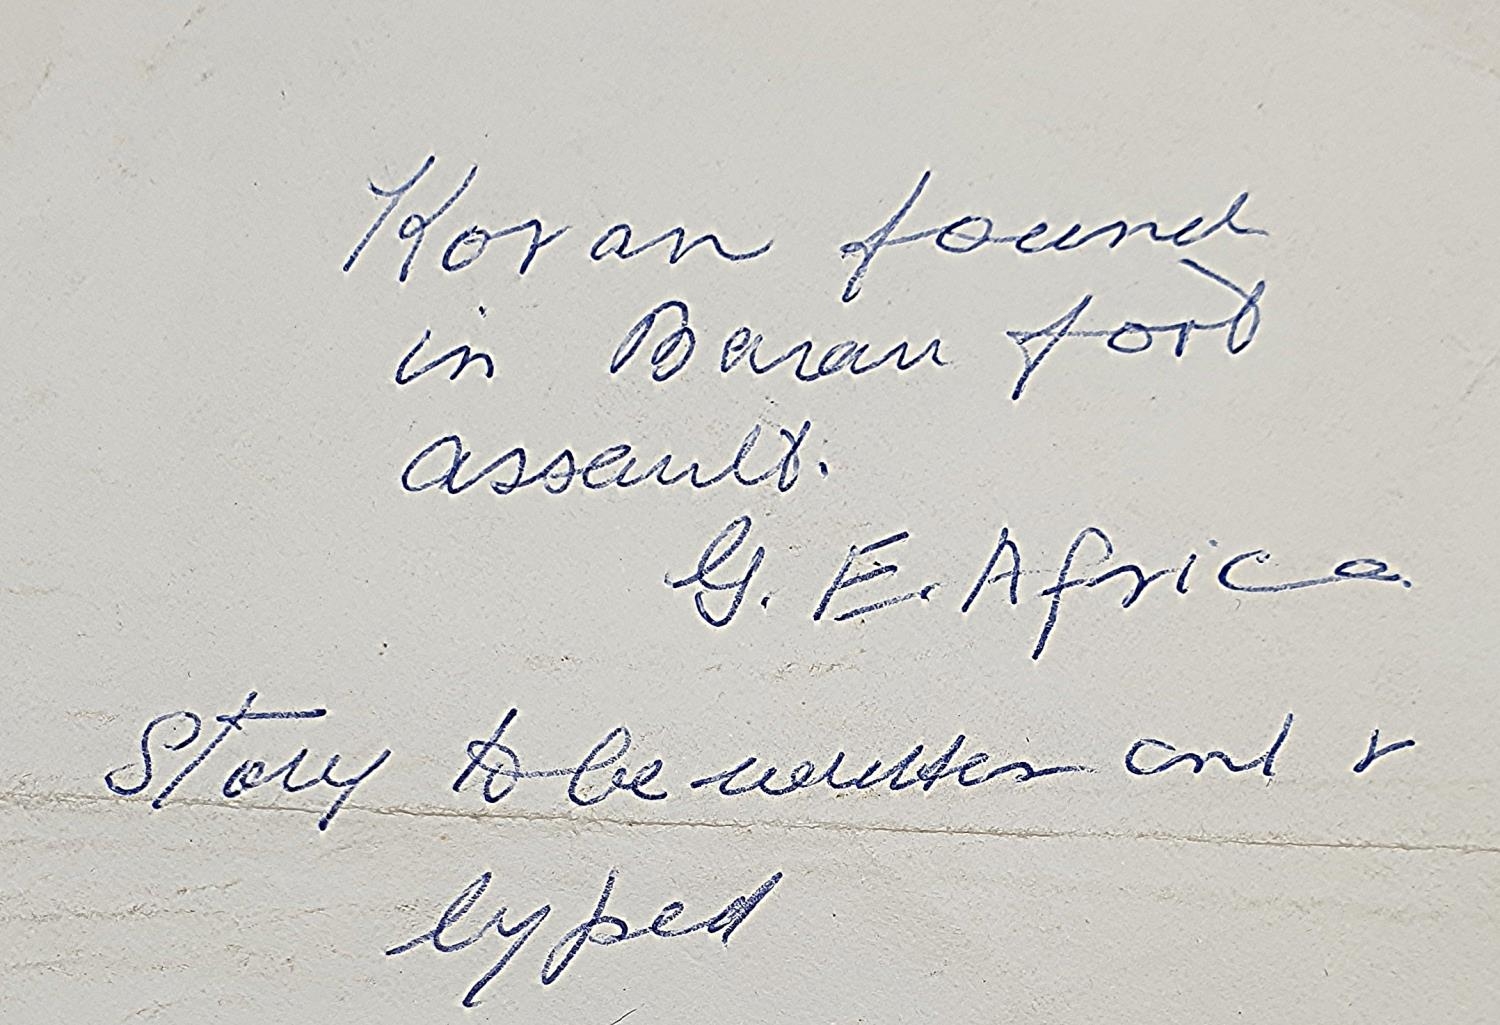 Koran found
in Baran fort
assault.
G. E. Africa
Story to be written out &
typed